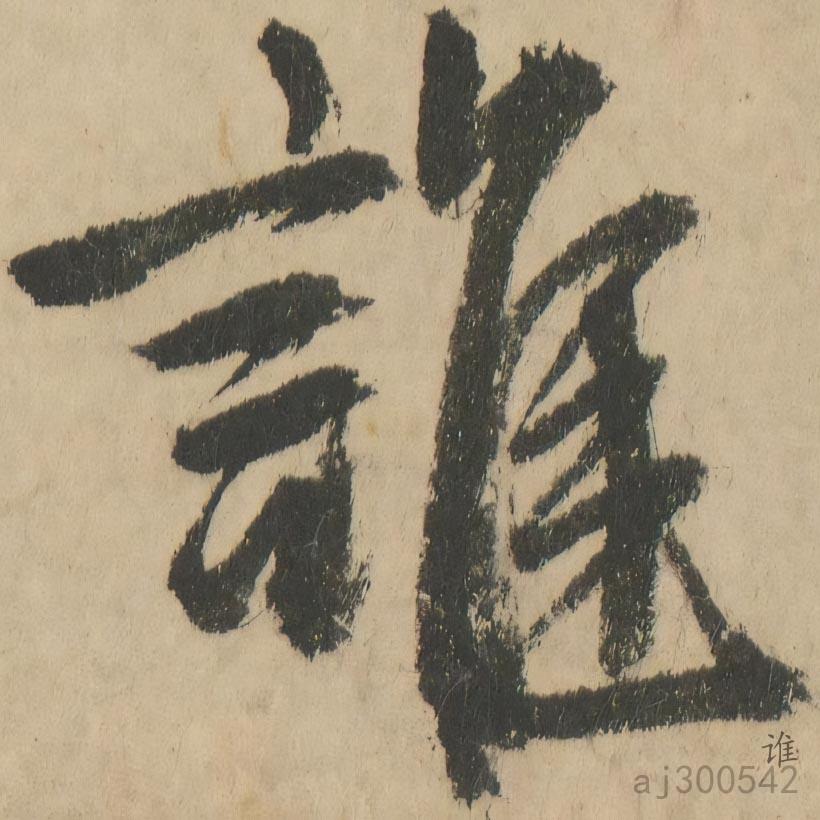 誰
谁
aj300542